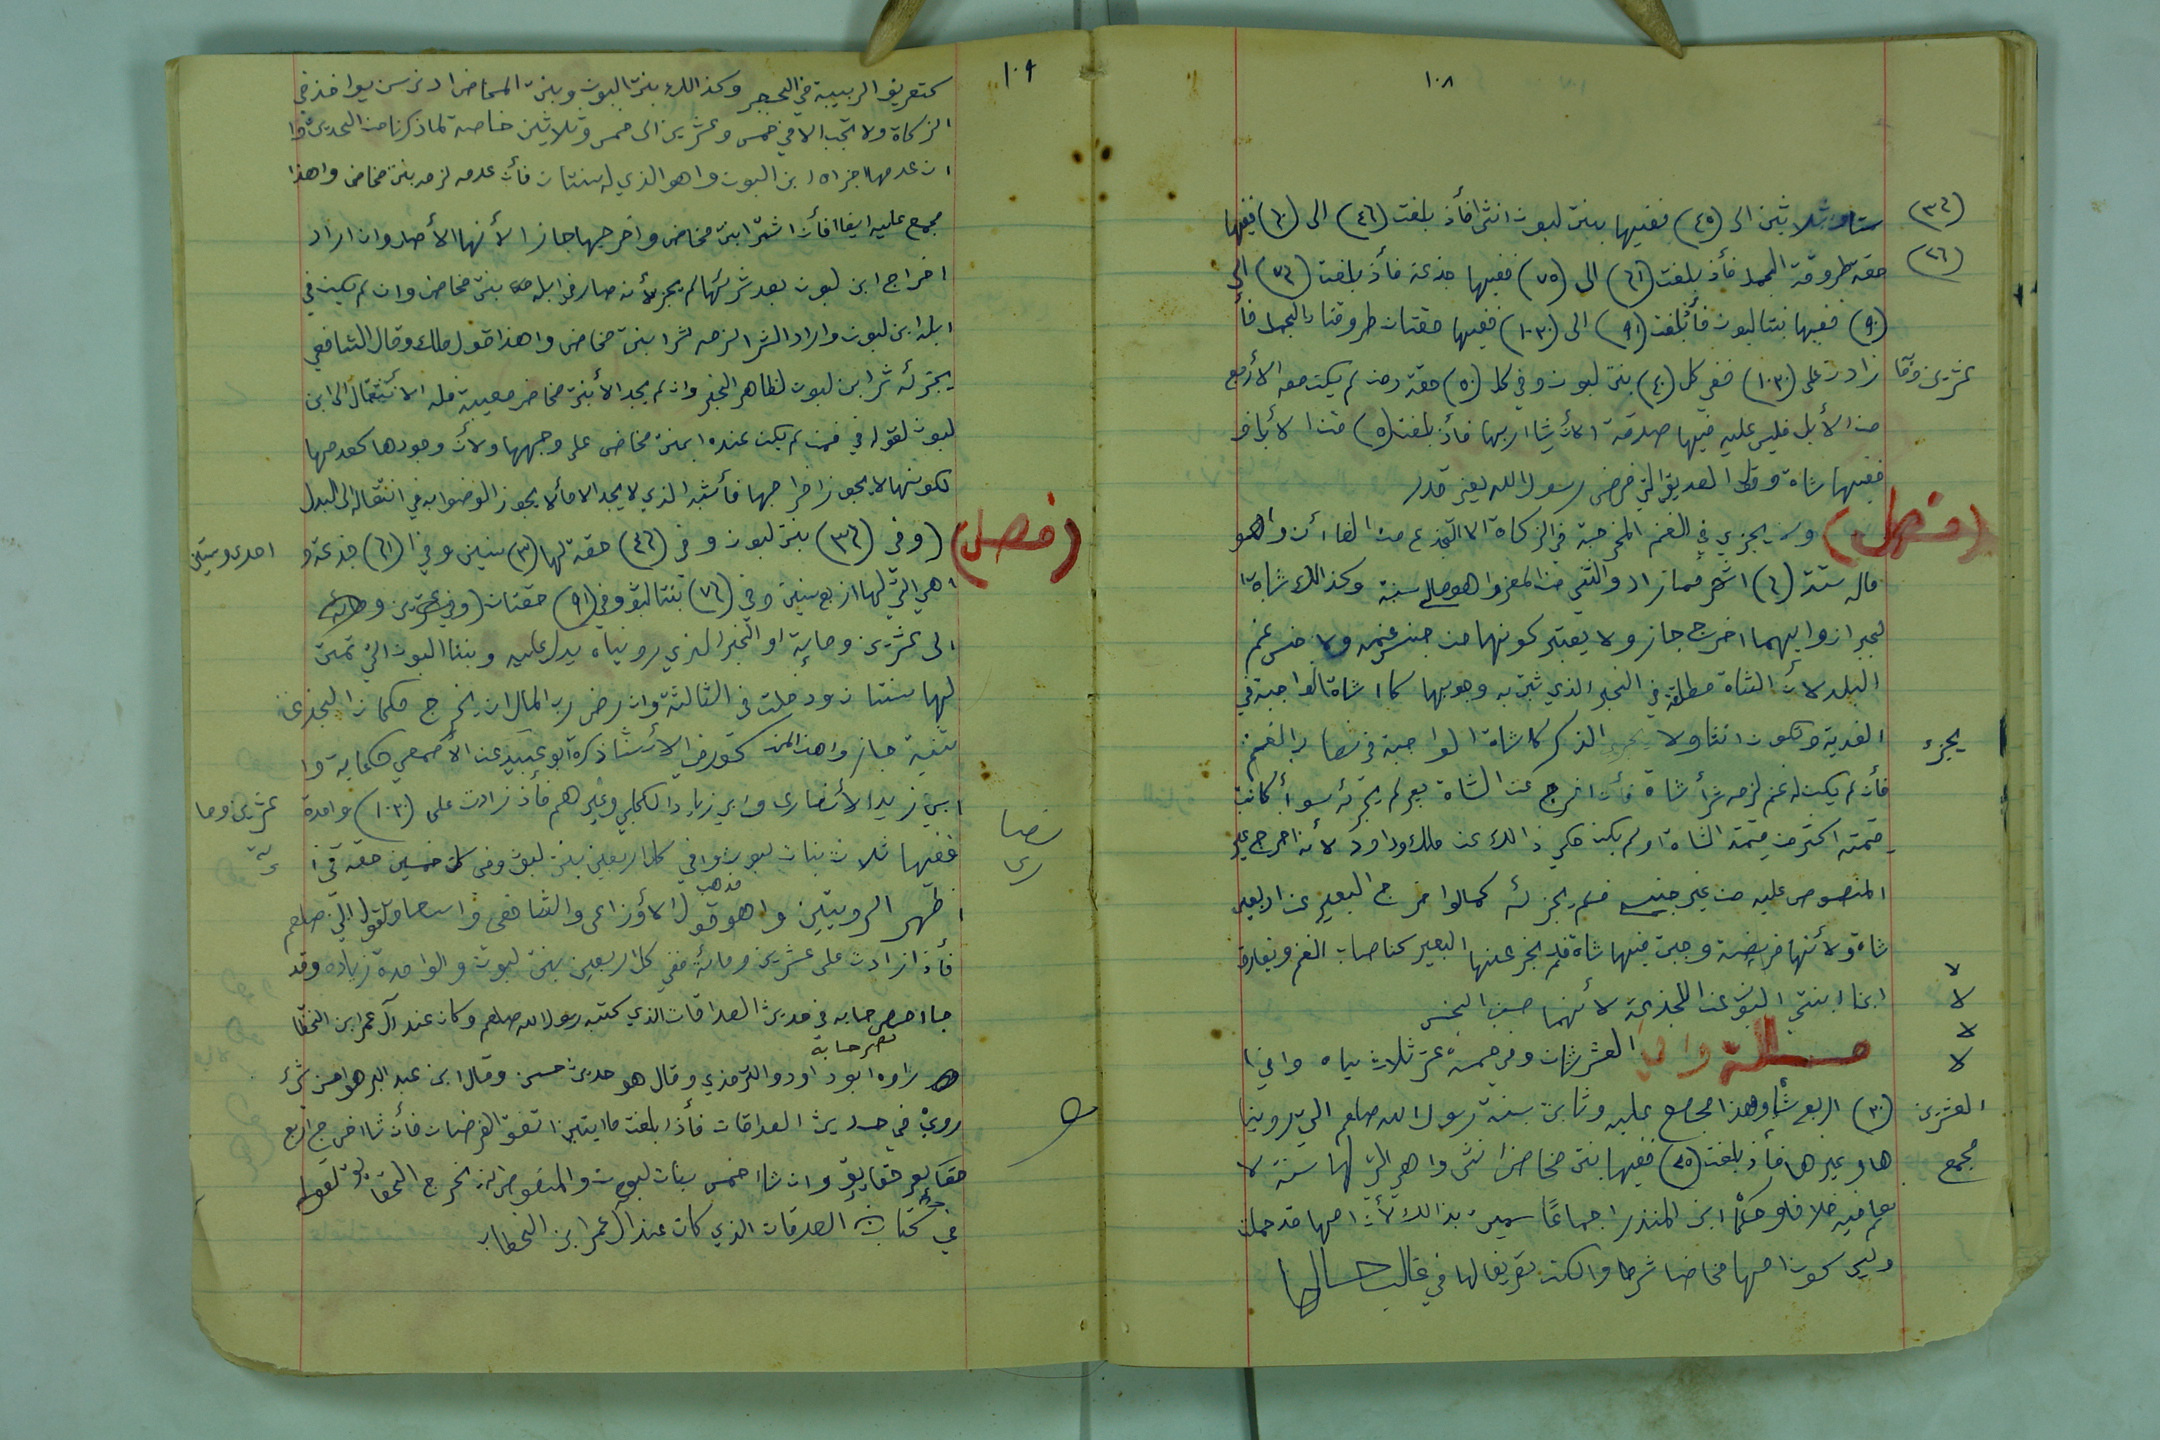 ١٠٨
ستا وثلاثين الى (٤٥) ففيها بنت لبون انثا فأذ بلغت (٤٦) الى (٦٠) ففيها
(٣٦)
حقة طروقة الجمل فأذ بلغت (٦١) الى (٧٥) ففيها جذعة فأذ بلغت (٧٦) الى
(٢٦)
(٩٠) ففيها بنتا لبون فأذ بلغت (٩١) الى (١٠٣٠) ففيها حقتان طروقتا الجمل فأ
زادت على (١٠٣٠) ففي كل (٤٠) بنت لبون وفي كل (٥٠) حقة ومن لم يكن معه الأربع
عشرين ومآ
من الأبل فليس عليه فيها صدقة الأان يشا ربها فأذ بلغت (٥) من الأبل
ففيها شاة وقال الصديق التي فرض رسول الله بغير قدر
(فصل) ولا يجزي في الغنم المخرجة في الزكاة الا الجذع من الضا أن واهو
ماله ستة (٦) اشهر فمازاد والثني من المعز واهو ماله سنة وكذالك شاة
لجبران وايهما اخرج جاز ولا يعتبر كونها من جنس غنمه ولا جنس غنم
البلد لأن الشاة مطلقة في الخبر الذي ثبت به وجوبها كا الشاة الواجبة في
الفدية وتكون انثا ولا يجزء الذكر كا الشاة الواجبة في نصاب الغنم
يجزء
فأن لم يكن له غنم لزمه شرأ شاة فأن اخرج عن الشاة بعير لم يجزئه سوأ كانت
قيمته اكثر من قيمة الشاة او لم يكن حكي ذالك عن ملك وداود لأنه اخرج غير
المنصوص عليه من غير جنسه فلم يجزئه كمالوا اخرج البعير عن اربعين
شاة ولأنها فريضة وجبت فيها شاة فلم يجز عنها البعير كنا صاب الغنم ويفارق
لا
ابنا ابنتي اللبون عن الجذعة لأنهما من الجنس
لا
لا
مسالة وافي العشر شاتان وفي خمسة عشر ثلاث شياه وافي ا
لا
(٣٠) اربع شياه وهذا مجامع عليه وثابت بسنة رسول الله صلعم التي روينا
العشرين
ها وغيرها فأذ بلغت (٢٥) ففيها بنت مخاض انثى واهي التي لها سنة لا
مجمع
نعلم فيه خلافا وحكا ابن المنذر اجماعًا سميت بذالك لأن امها قد حملت
وليس كون امها مخاضا شرطا والكن تعريفا لها في غالب حالها
١٠٩
كتعريف الربيبة في الحجر وكذالك بنت البون وبنت المخاض ادنى سن يواخذ في
الزكاة ولا تجب الا في خمس وعشرين الى خمس وثلاثين خاصة لما ذكرنا من الحديث وا
ان عدمها اجزاه ابن البون واهو الذي له سنتان فأن عدمه لزمه بنت مخاض واهذا
مجمع عليه ايضا فأن اشترا بنت مخاض واخرجها جاز الأنها الأصل وان اراد
اخراج ابن لبون بعد شرائها لم يجز لأنه صار في ابله بنت مخاض وان لم يكن في
ابله ابن لبون واراد الشرا لزمه شرا بنت مخاض واهذا قول ملك وقال الشافعي
يجزئه شرا بن لبون لظاهر الخبر وان لم يجد الأ بنت مخاض معيبة فله الانتقال الى ابن
لبون لقوله في فمن لم يكن عنده ابنت مخاض على وجهها ولأن وجودها كعدمها
لكونها لا يجوز اخراجها فأشبه الذي لا يجد الا مأ لا يجوز الوضوا به في انتقاله الى البدل
(فصل) (وفي (٣٦) بنت لبون وفي (٤٦) حقة لها (٣) سنين وفي ا (٦١) جذعة و
احدى وستين
اهي التي لها اربع سنين وفي (٧٦) بنتا لبون وفي (٩١) حقتان (وفي عشرين ومائة
الى عشرين وماية او الخبر الذي رويناه يدل عليه وبنتا البون التي تمت
لها سنتان ودخلت في الثالثة وان رض رب المال ان يخرج مكان الجذعة
ثنية جاز واهذا المذكور في الأسنا ذكرة ابو عبيد عن الأصمعي حكاية وا
ابي زيد الأنضارى وابي زياد الكلابي وغيرهم فأذ زادت على (١٠٣٠) واحدة
نصا
رى
عشرين وما
ئة
ففيها ثلاث بنات لبون وافي كل اربعين بنت لبون وفى كل خمسين حقة في ا
اظهر الرويتين واهو مذهب قول الأوزاعى والشافعى واسحاق لقول النبي صلعم
فأذا زادت على عشرين ومائة ففي كل اربعين بنت لبون والواحدة زيادة وقد
جا امصرحا به في حديث الصداقات الذي كتبه رسول الله صلعم وكان عند آل عمر ابن الخطا
تصرحا بة
راوه ابو داود والترمذي وقال هو حديث حسن وقال ابن عبد البر هو احسن شئ
روي في حديث الصداقات فأذ بلغت ما ايتين اتفق الفرضان فأن شا اخرج اربع
حقايق وان شا اخمس بنات لبون والمنصوص انه يخرج الحقايق لقوله
في كتاب الصدقات الذي كان عند آل عمر ابن الخطاب